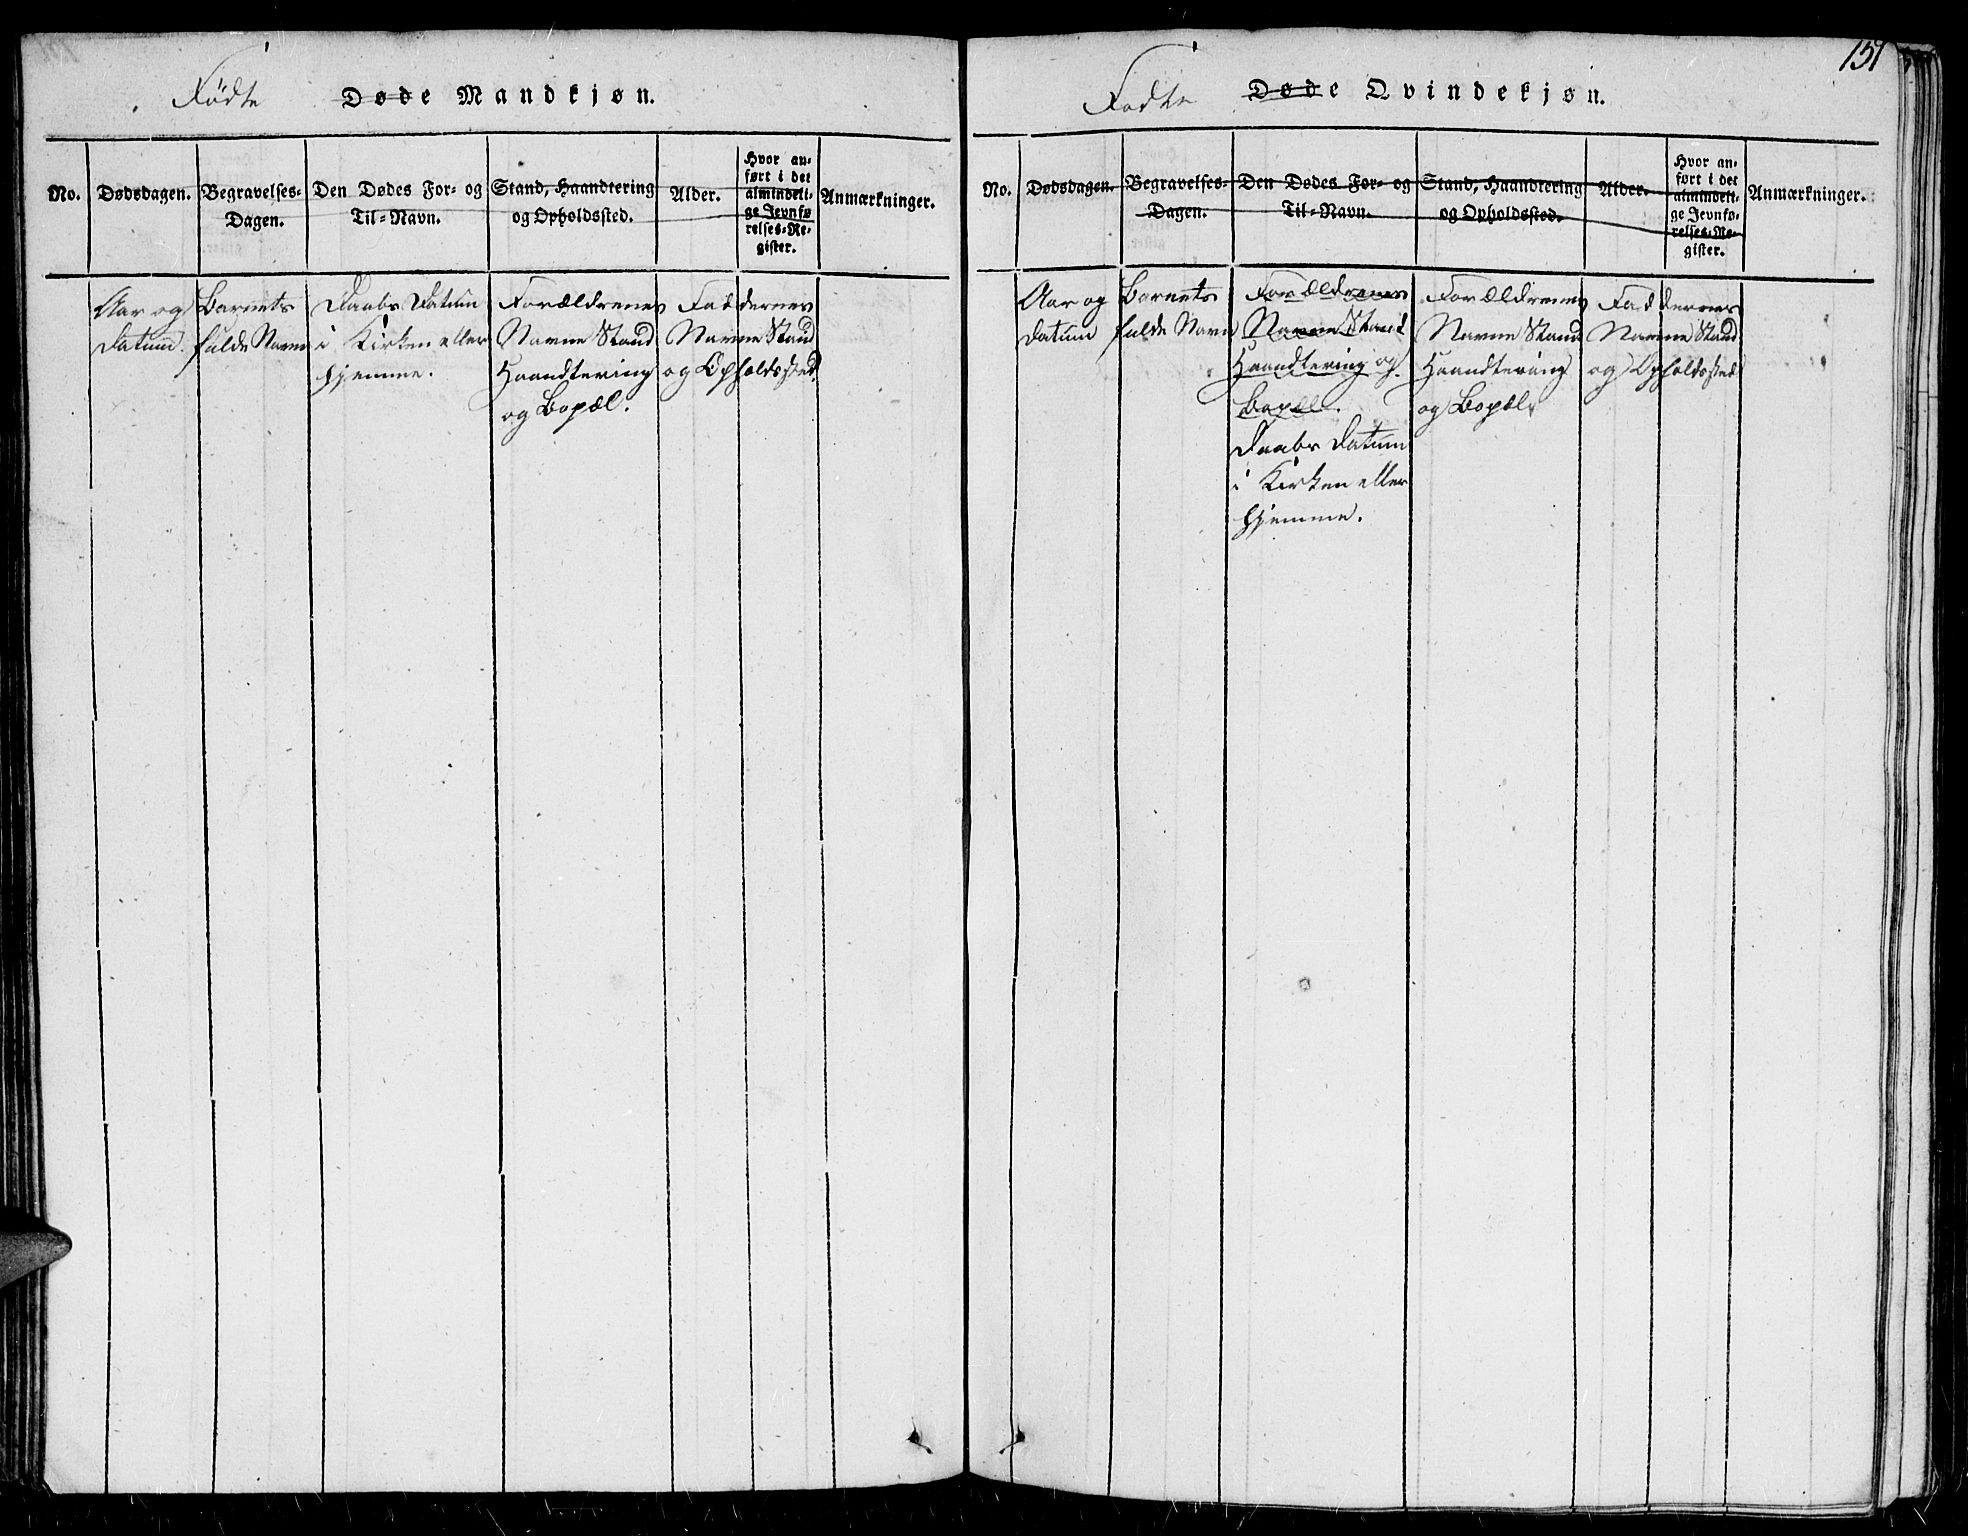 Fødte Døde Mandkjøn.
No.
Dødsdagen.
Begravelses-
Dagen.
Den Dødes For- og
Til-Navn.
Stand, Haandtering
og Opholdssted.
Alder.
Hvor an-
ført i det
almindeli-
ge Jevnfø
relses-Re-
gister.
Anmærkninger.
Aar og
Datum.
Barnets
fulde Navn
Daabs Datum
i Kirken eller
hjemme.
Forældrenes
Navne Stand
Haandtering
og Bopæl.
Faddernes
Navne Stand
og Opholdssted.
151
Fødte Døde Qvindekjøn.
No.
Dødsdagen.
Begravelses-
Dagen.
Den Dødes For- og
Til-Navn.
Stand, Haandtering
og Opholdssted.
Alder.
Hvor an-
ført i det
almindeli-
ge Jevnfø-
relses-Re-
gister.
Anmærkninger.
Aar og
Datum
Barnets
fulde Navn
Forældrenes
Navne Stand
Haandtering og
Bopæl.
Daabs Datum
i Kirken eller
hjemme.
Forældrenes
Navne Stand
Haandtering
og Bopæl.
Faddernes
Navne Stand
og Opholdssted